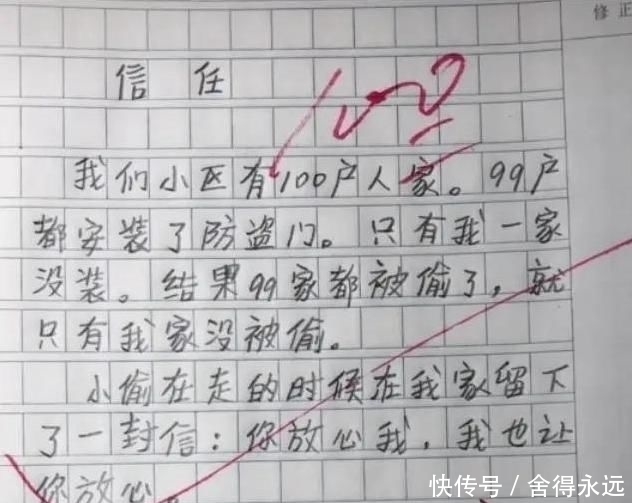 修正
信任
100
我们小区有100户人家。99户
都安装了防盗门。只有我一家
没装。结果99家都被偷了，就
只有我家没被偷。
小偷在走的时候在我家留下
了一封信：你放心我，我也让
你放心。
快传号/舍得永远